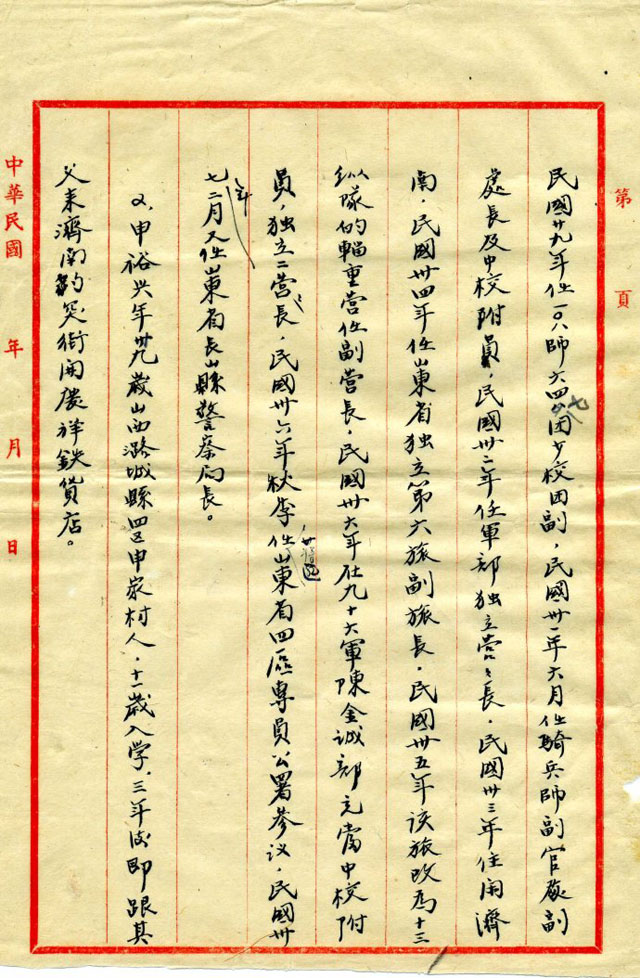 第　頁
民國廿九年任一〇八師六四七团少校团副，民國卅一年六月任騎兵師副官處副
處長及中校附員，民國卅二年任軍部独立营々長，民國卅三年住闲濟
南，民國卅四年任山東省独立第六旅副旅長，民國卅五年该旅改為十三
纵隊的輜重营任副营長，民國卅六年在九十六軍陳金诚部充當中校附
員，独立二营長，民國卅六年秋季任山東省四區專員公署參议，民國卅
七年二月又任山東省長山縣警察局長。
2、申裕兴年卅九歲山西潞城縣四区申家村人，十一歲入学，三年後即跟其
父来濟南趵突街開慶祥鉄貨店。
中華民國　年　月　日